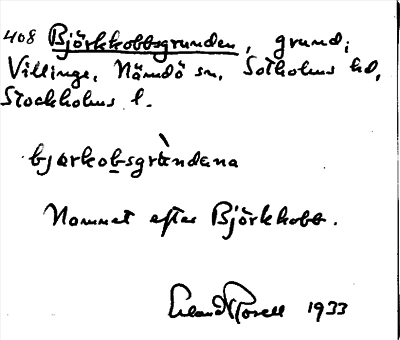 408 Björkkobbsgrunden, grund i
Villinge, Nämdö sn, Sotholms hd,
Stockholms l.
bjǫrkobsgrὰndana
Namnet efter Björkkobb.
Erland Rosell 1933